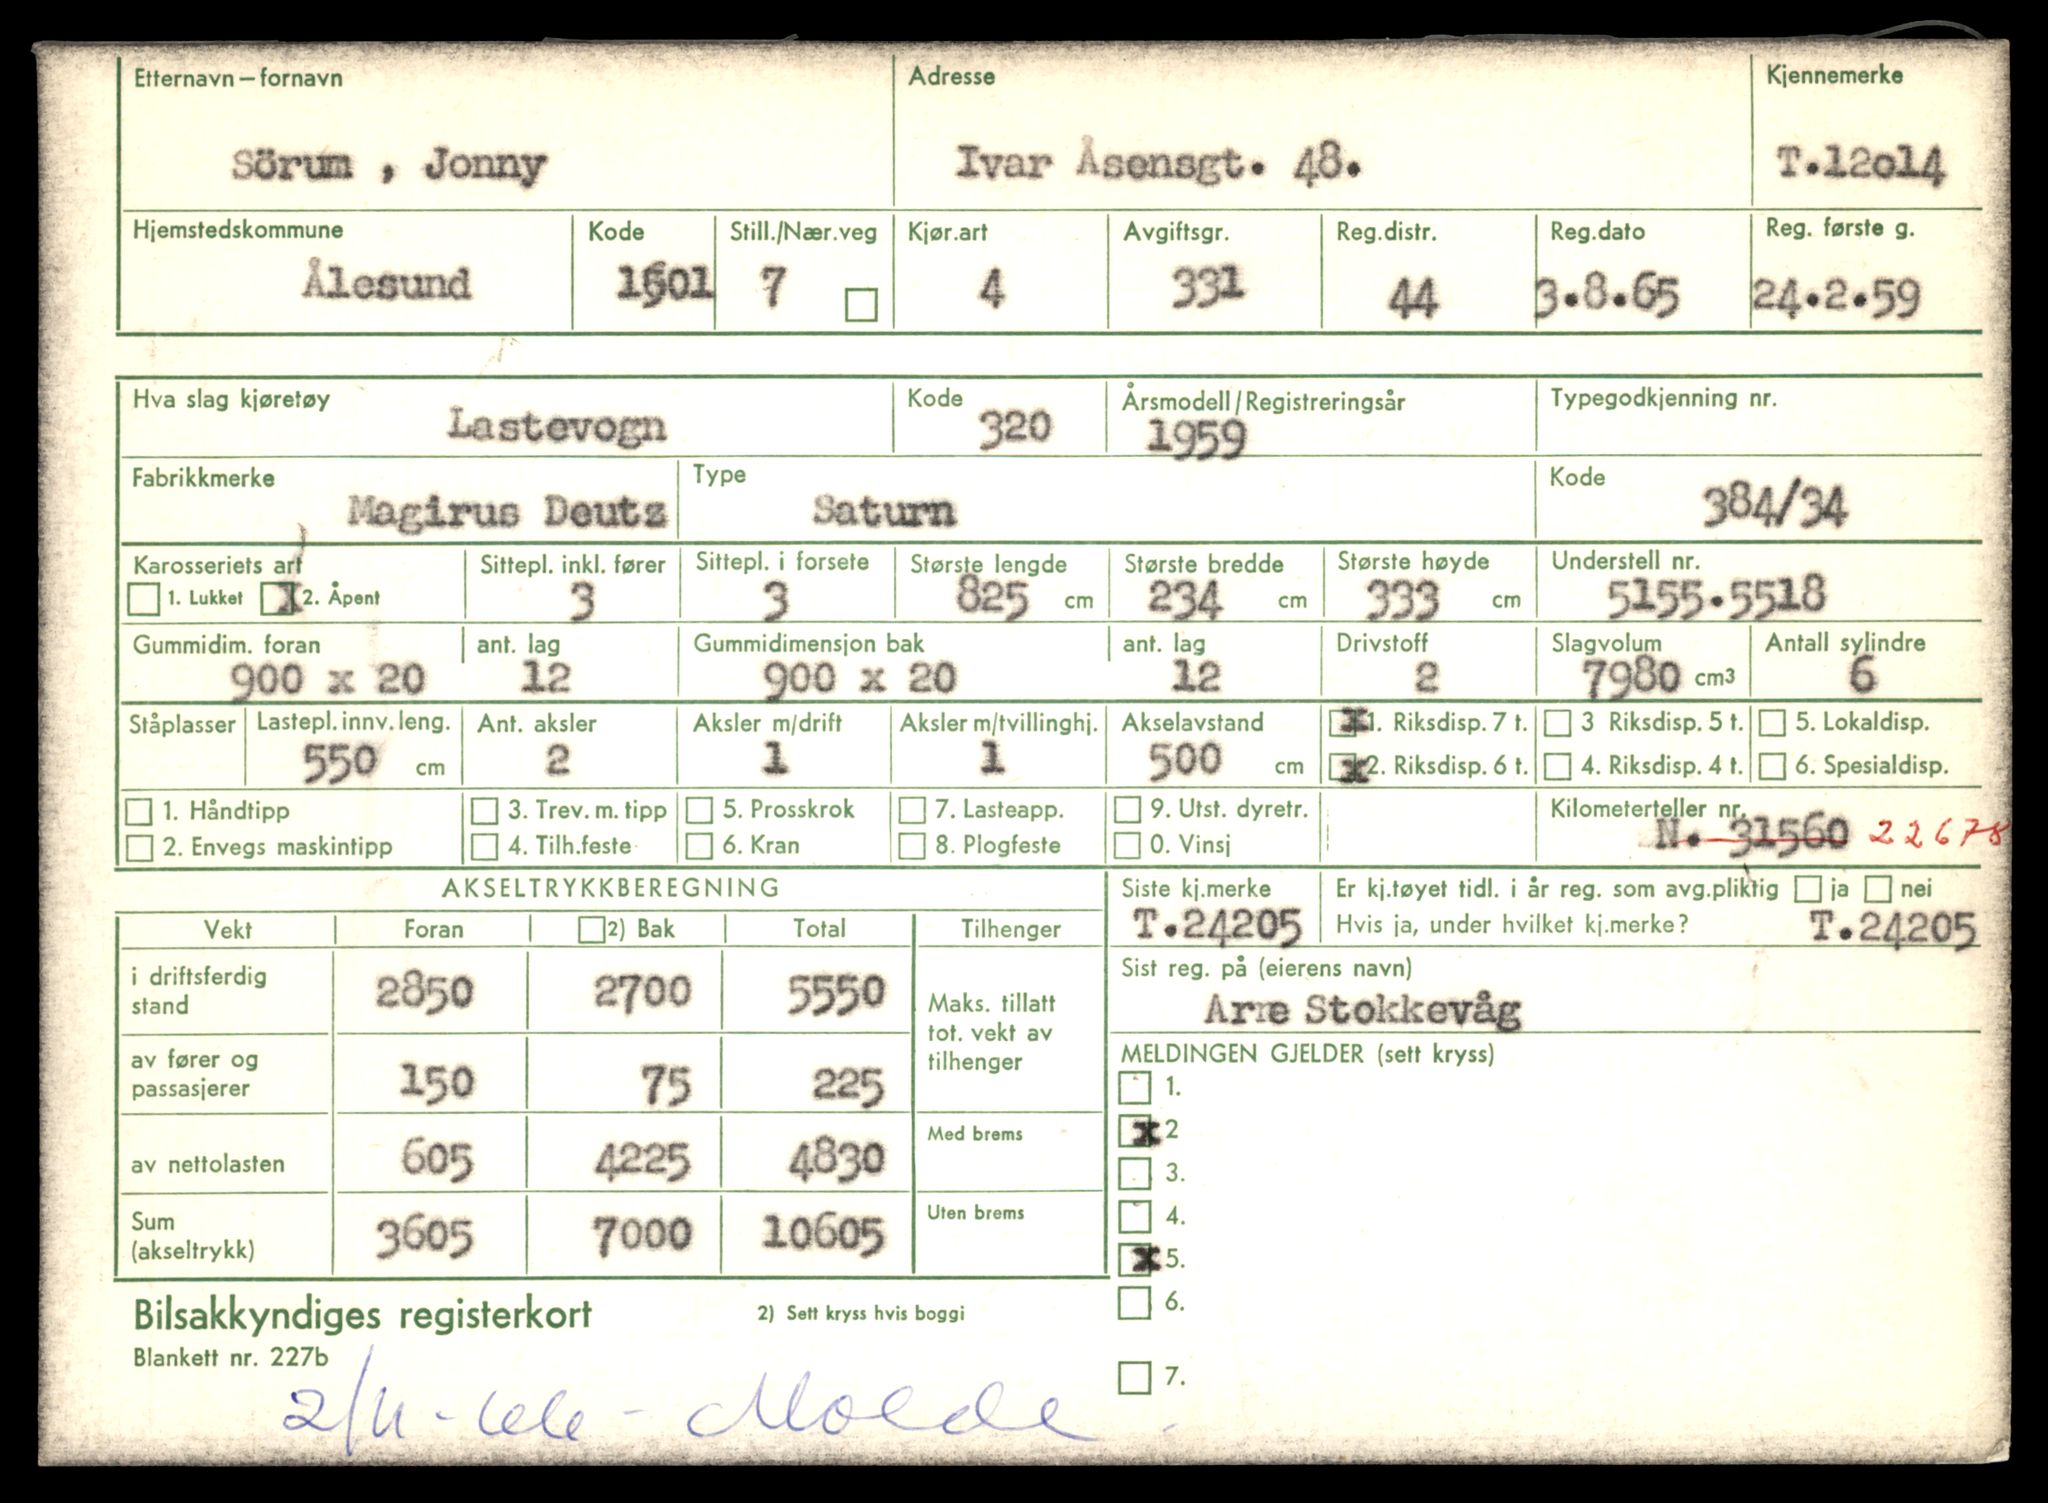 Etternavn – fornavn Adresse Kjennemerke
Sörum , Jonny Ivar Åsensgt. 48. T.12o14
Hjemstedskommune Kode Still./Nær.veg Kjør.art Avgiftsgr. Reg.distr. Reg.dato Reg. første g.
Ålesund 1501 7 4 331 44 3.8.65 24.2.59
Hva slag kjøretøy Kode Årsmodell/Registreringsår Typegodkjenning nr.
Lastevogn 320 1959
Fabrikkmerke Type Kode
Magirus Deutz Saturn 384/34
Karosseriets art Sittepl. inkl. fører Sittepl. i forsete Største lengde Største bredde Største høyde Understell nr.
1. Lukket X 2. Åpent 3 3 825 cm 234 cm 333 cm 5155.5518
Gummidim. foran ant. lag Gummidimensjon bak ant. lag Drivstoff Slagvolum Antall sylindre
900 x 20 12 900 x 20 12 2 7980 cm3 6
Ståplasser Lastepl. innv. leng. Ant. aksler Aksler m/drift Aksler m/tvillinghj. Akselavstand x 1. Riksdisp. 7 t. 3 Riksdisp. 5 t. 5. Lokaldisp.
550 cm 2 1 1 500 cm x 2. Riksdisp. 6 t. 4. Riksdisp. 4 t. 6. Spesialdisp.
1. Håndtipp 3. Trev. m. tipp 5. Prosskrok 7. Lasteapp. 9. Utst. dyretr. Kilometerteller nr.
2. Envegs maskintipp 4. Tilh.feste 6. Kran 8. Plogfeste 0. Vinsj N. 31560 22678
AKSELTRYKKBEREGNING Siste kj.merke Er kj.tøyet tidl. i år reg. som avg.pliktig ja nei
Vekt Foran 2) Bak Total Tilhenger T.24205 Hvis ja, under hvilket kj.merke? T.24205
i driftsferdig stand 2850 2700 5550 Maks. tillatt tot. vekt av tilhenger
Sist reg. på (eierens navn)
Arne Stokkevåg
av fører og passasjerer 150 75 225
MELDINGEN GJELDER (sett kryss)
1.
av nettolasten 605 4225 4830 Med brems
x 2
3.
Sum (akseltrykk) 3605 7000 10605 Uten brems
4.
x 5.
Bilsakkyndiges registerkort 2) Sett kryss hvis boggi 6.
Blankett nr. 227b 7.
2/11-66- Molde